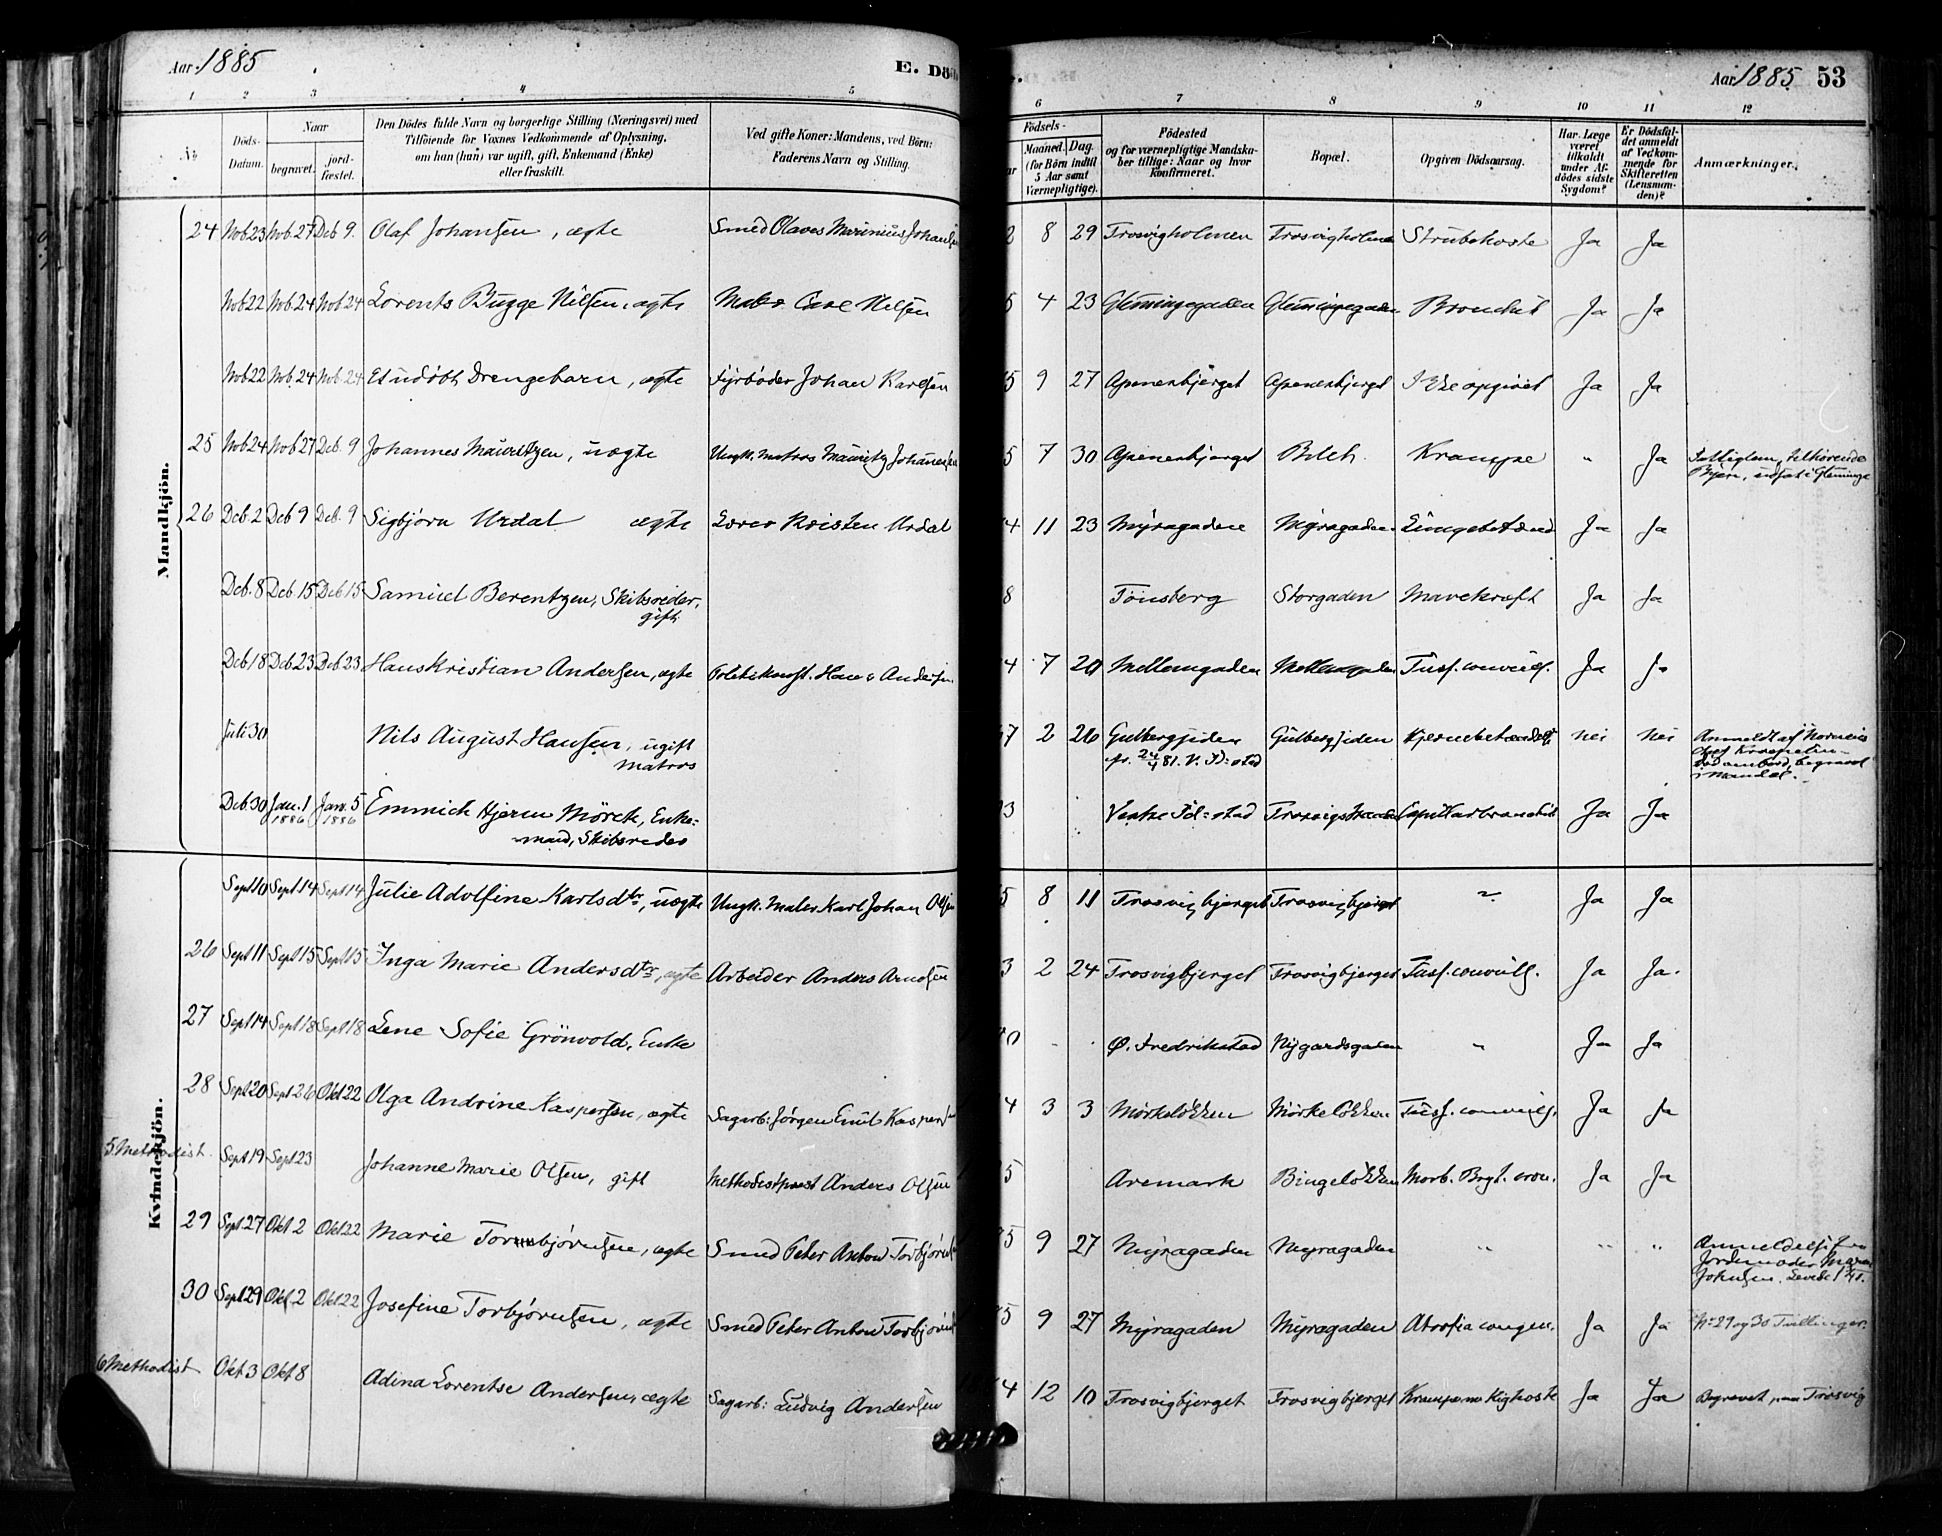 Aar 1885
E. Dö
Aar 1885 53
1 2 3 4 5 6 7 8 9 10 11 12
No
Döds-Datum.
Naar
begravet.
jord-fæstet.
Den Dödes fulde Navn og borgerlige Stilling (Næringsvei) med
Tilföiende for Voxnes Vedkommende af Oplysning,
om han (hun) var ugift, gift, Enkemand (Enke)
eller fraskilt.
Ved gifte Koner: Mandens, ved Börn:
Faderens Navn og Stilling.
Födsels-
Maaned. Dag.
(for Börn indtil
5 Aar samt
Værnepligtige).
Födested
og for værnepligtige Mandska-
ber tillige: Naar og hvor
Konfirmeret.
Bopæl.
Opgiven Dödsaarsag.
Har Læge
været
tilkaldt
under Af-
dödes sidste
Sygdom?
Er Dödsfal-
det anmeldt
af Vedkom-
mende for
Skifteretten
(Lensman-
den)?
Anmærkninger.
Mandkjön.
24 Nob 23 Nob. 27 Deb 9. Olaf Johansen, ægte Smed Olaves Marinius Johansen 2 8 29 Trosvigholmen Trosvigholmen Strubehoste Ja Ja
Nob 22 Nob. 24 Nob 24 Lorents Bugge Nilsen, ægte Carl Nilsen 5 4 23 Glemmingegaden Glemmingegaden Bronchit Ja Ja
Nob 22 Nob. 24 Nob. 24 Et udöbt Drengebarn, ægte Fyrböder Johan Karlsen 5 9 27 Apenesbjerget Apenesbjerget Ikke opgivet Ja Ja
25 Nob 24 Nob 27 Deb. 9 Johannes Mauritzen, uægte Ungk. Matros Mauritz Johannesen 5 7 30 Apenesbjerget Krampe " Ja tilhörende
Byen, indsat i Glemminge
26 Deb. 2 Deb 9 Deb. 9 Sigbjörn Urdal ægte Kristen Urdal 4 11 23 Myragaden Myragaden Lungebetænd Ja Ja
Deb. 8 Deb. 15 Deb 15 Samuel Berentzen, Skibsreder,
gift. 8 Tönsberg Storgaden Mavekræft Ja Ja
Deb 18 Deb 23 Deb 23 Hans Kristian Andersen, ægte Politikonst. Hans Andersen 4 7 20 Mellemgaden Mellemgaden Tuss. convuls. Ja Ja
Juli 30 Nils August Hansen, ugift
Matros 7 2 26 Gulbergsiden
24/4 81. V. Fd: stad Gulbergsiden Hjernebetændelse nei nei Anmeldt af
död ombord, begravet
i Mandal.
Deb. 30 Jan. 1
1886 Jan. 5
1886 Emmich Hjerm Mörch, Enke-
mand, Skibsreder 3 Vestre Fd: stad Trosvigstranden Capillarbronchit Ja Ja
Kvindekjön.
Sept 10 Sept 14 Sept 14 Julie Adolfine Karlsdtr, uægte Ungk. Maler Karl Johan Olsen 5 8 11 Trosvigbjerget Trosvigbjerget " Ja Ja
26 Sept 11 Sept 15 Sept 15 Inga Marie Andersdtr, ægte Arbeider Anders Arnesen 3 2 24 Trosvigbjerget Trosvigbjerget Tuss. convuls. Ja Ja.
27 Sept 14 Sept 18 Sept 18 Lene Sofie Grönvold, Enke 0 - . Ø. Fredrikstad Nygardsgaden " Ja Ja
28 Sept 20 Sept 26 Okt 22 Olga Andrine Kaspersen, ægte Sagarb: Jörgen Emil Kaspersen 4 3 3 Mörkelökken Mörkelökken Tuss. convuls. Ja Ja
5. Methodist. Sept 19 Sept 23 Johanne Marie Olsen, gift Methodistpræst Anders Olsen 5 Aremark Bingelökken Morb. Brgt. cron. Ja Ja
29 Sept. 27 Okt 2 Okt 22 Marie Torbjörnsen, ægte Smed Peter Anton Torbjörnsen 5 9 27 Myragaden Myragaden " " " Anmeldelse fra
Jordemoder Maren
Johnsen. Levede 1
30 Sept. 29 Okt 2 Okt 22 Josefine Torbjörnsen, ægte Smed Peter Anton Torbjörnsen 5 9 27 Myragaden Myragaden Atrofia congen. Ja Ja No 29 og 30 Tvillinger.
6 Methodist Okt 3 Okt 8 Adina Lorentse Andersen, ægte Sagarb: Ludvig Andersen 4 12 10 Trosvigbjerget Trosvigbjerget Krampe Kighoste Ja Ja Begravet paa Trosvig